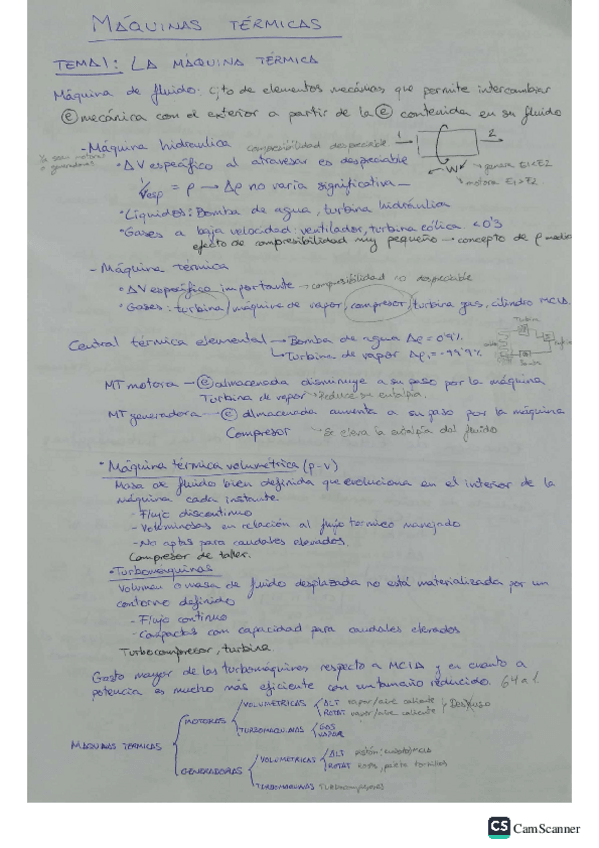 MÁQUINAS TÉRMICAS
TEMA 1: LA MÁQUINA TÉRMICA
Máquina de fluido: cjto de elementos mecánicos que permite intercambiar
e mecánica con el exterior a partir de la e contenida en su fluido
- Máquina hidraulica compresibilidad despreciable 1 2
Ya sean motores o generadoras
• ΔV específico al atravesar es despreciable
W → genera E1<E2
1/Vesp = ρ → Δρ no varía significativa
→ motora E1>E2
• Líquidos: Bomba de agua, turbina hidráulica
• Gases a baja velocidad: ventilador, turbina eólica <0'3
efecto de compresibilidad muy pequeño → concepto de ρ media
- Máquina térmica
• ΔV específico importante → compresibilidad no despreciable
• Gases: turbina, máquina de vapor, compresor, turbina gas, cilindro MCIA.
Central térmica elemental → Bomba de agua Δρ = 0'9%
Turbina
→ Turbina de vapor Δρ = -99'9%
MT motora → e almacenada disminuye a su paso por la máquina
Turbina de vapor → Reduce su entalpía.
MT generadora → e almacenada aumenta a su paso por la máquina
Compresor → Se eleva la entalpía del fluido
• Máquina térmica volumétrica (p-v)
Masa de fluido bien definida que evoluciona en el interior de la
máquina cada instante.
- Flujo discontinuo
- Voluminosas en relación al flujo termico manejado
- No aptas para caudales elevados.
Compresor de taller.
• Turbomáquinas
Volumen o masa de fluido desplazada no está materializada por un
contorno definido
- Flujo continuo
- Compactas con capacidad para caudales elevados
Turbocompresor, turbina
Gasto mayor de las turbomáquinas respecto a MCIA y en cuanto a
potencia es mucho más eficiente con un tamaño reducido. 64 a 1
VOLUMÉTRICAS ALT vapor/aire caliente
MOTORAS ROTAT vapor/aire caliente Desuso
TURBOMAQUINAS GAS
VAPOR
MAQUINAS TÉRMICAS
VOLUMETRICAS ALT
GENERADORAS ROTAT tornillos
TURBOMAQUINAS Turbocompresores
CS CamScanner